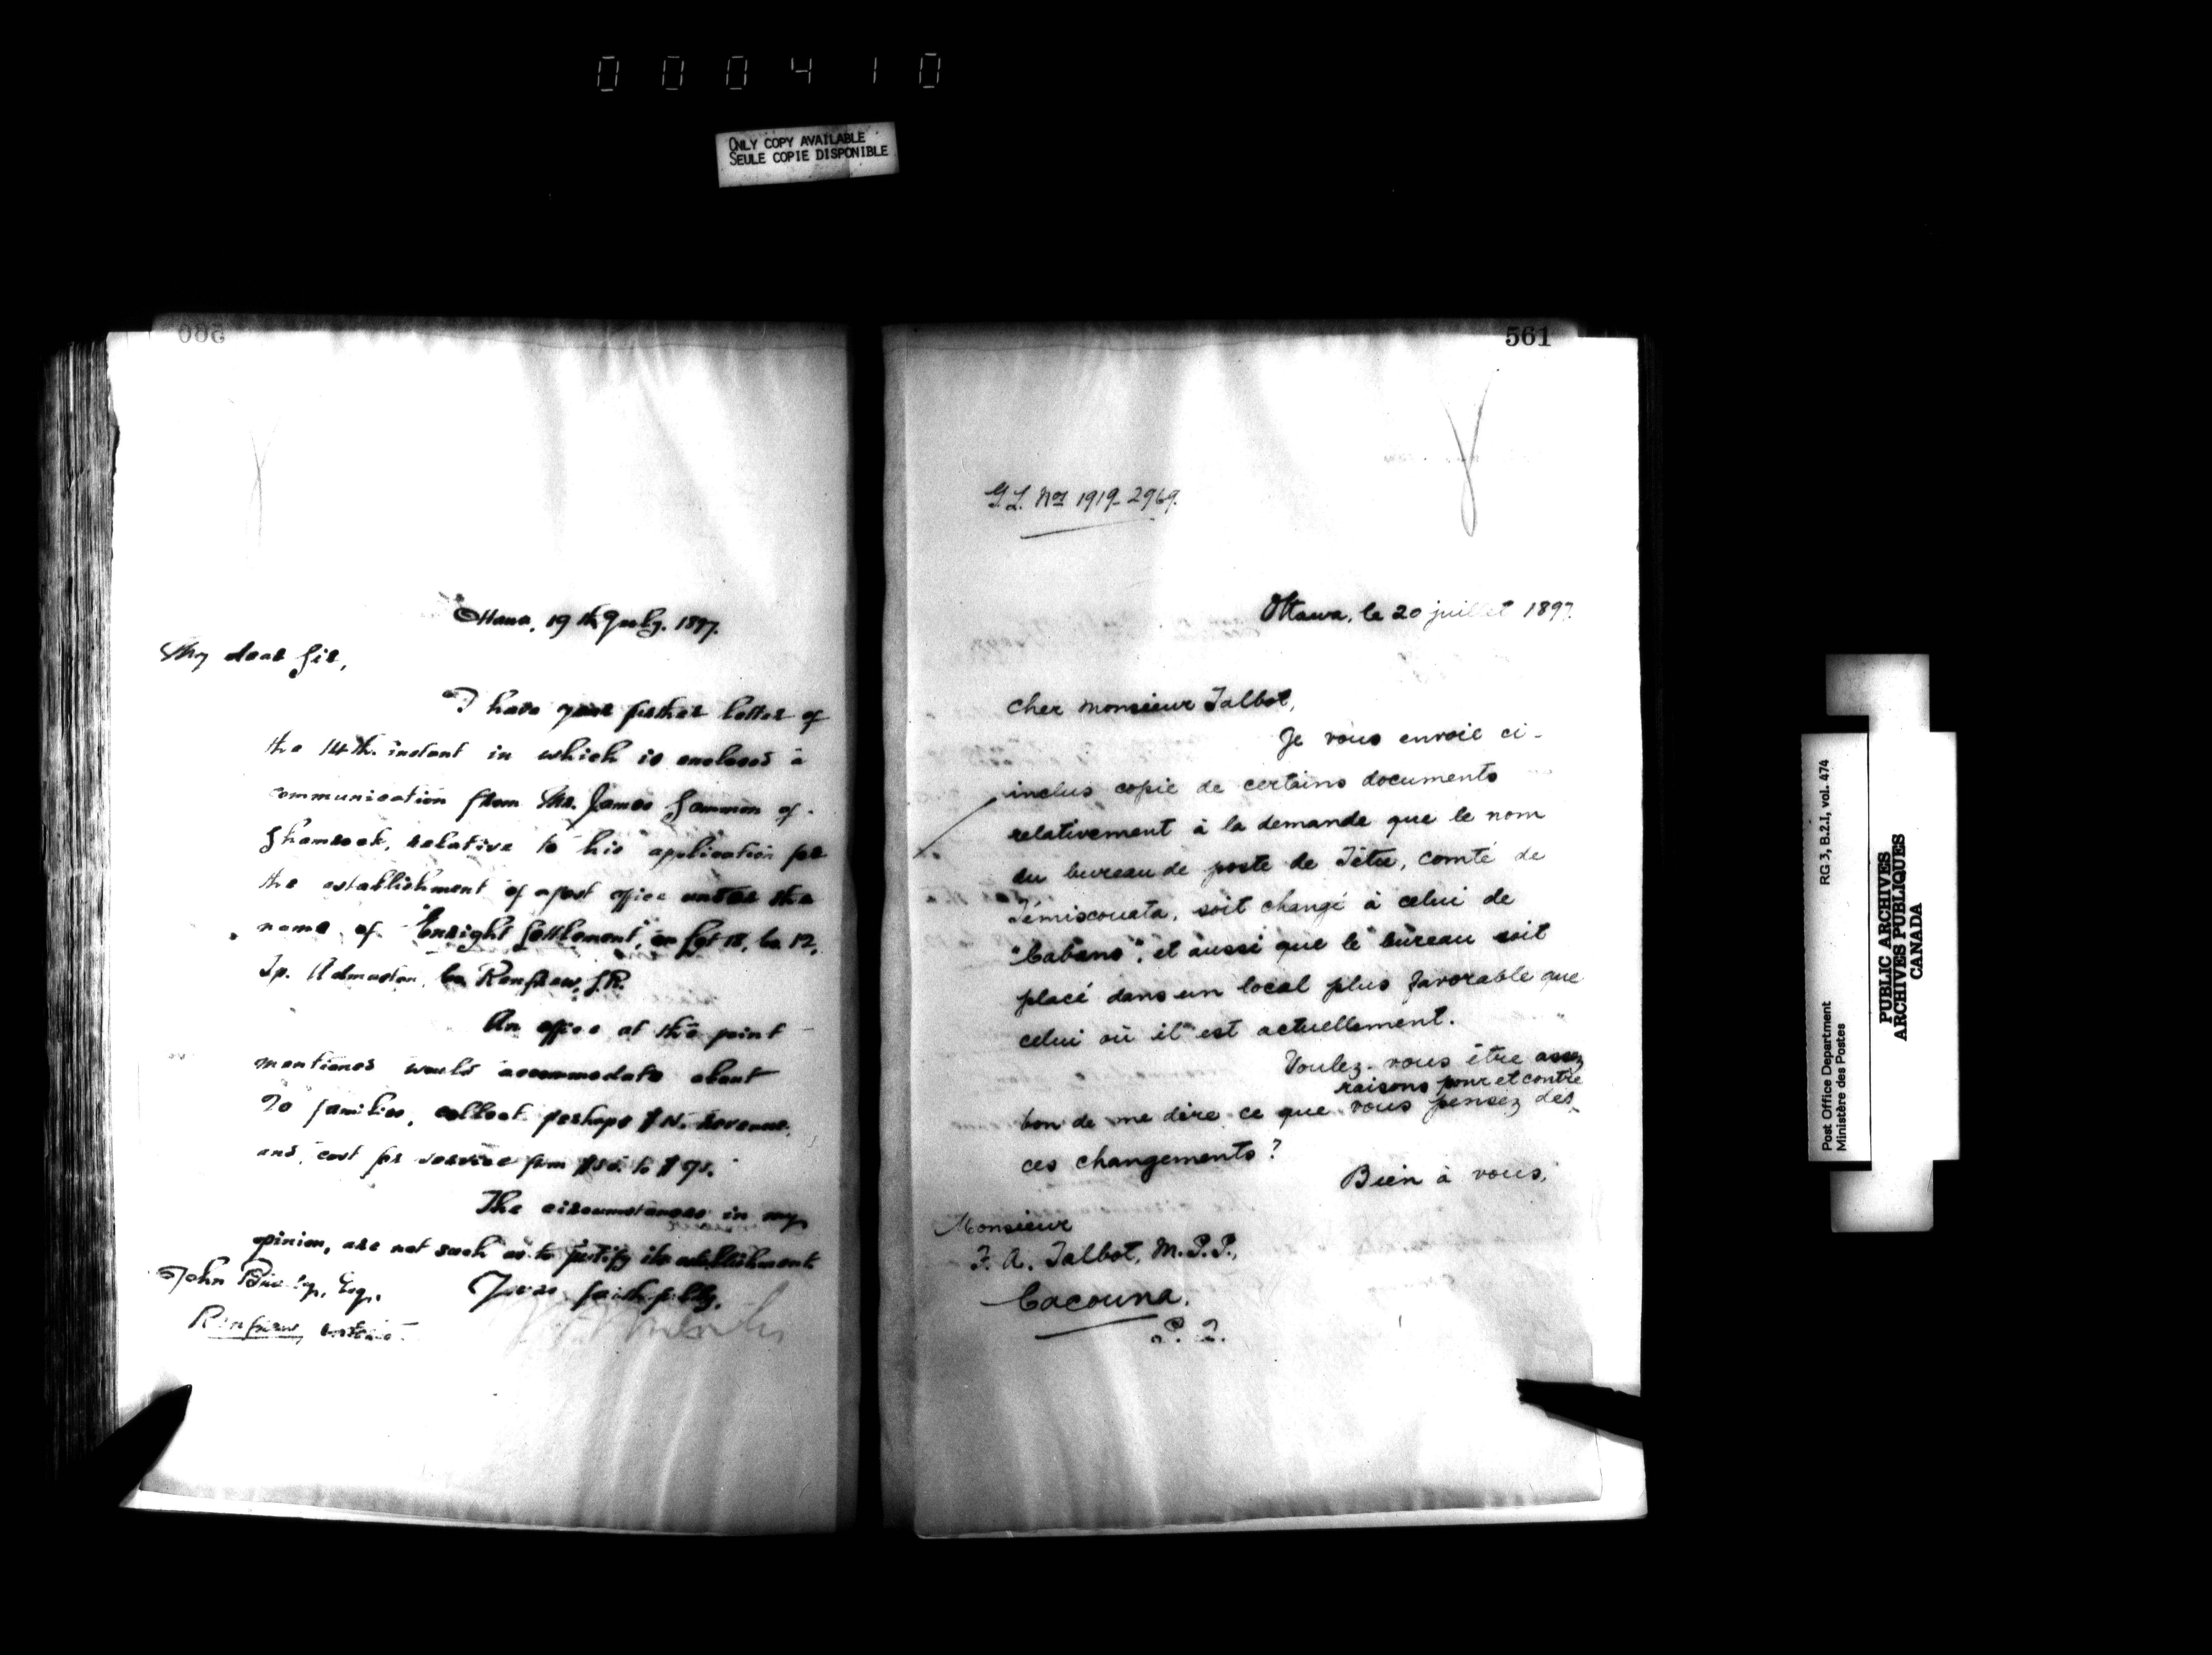 000410
ONLY COPY AVAILABLE
SEULE COPIE DISPONIBLE
Ottawa, 19th July. 1897.
My dear Sir,
I have your further letter of
the 14th. instant in which is enclosed a
communication from Mr. James Gammon of
Shamrock, relative to his application for
the establishment of a post office under the
name of "Enright Settlement", on Lot 18, Co. 12,
Tp. Admaston, Co. Renfrew, S.R.
An office at the point
mentioned would accommodate about
20 families, collect perhaps $15. revenue,
and cost for service from $50. to $75.
The circumstances in my
opinion, are not such as to justify its establishment.
Yours faithfully,
John Esq.,
Renfrew, Ontario.
561
G.L. Nos 1919-2969.
Ottawa, le 20 juillet 1897.
Cher monsieur Talbot,
Je vous envoie ci-
inclus copie de certains documents
relativement à la demande que le nom
du bureau de poste de Têtu, comté de
Témiscouata, soit changé à celui de
"Cabano", et aussi que le bureau soit
placé dans un local plus favorable que
celui où il est actuellement.
Voulez-vous être assez
raisons pour et contre
bon de me dire ce que vous pensez des
ces changements?
Bien à vous,
Monsieur
F. A. Talbot, M.P.P.,
Cacouna,
P. Q.
Post Office Department
Ministère des Postes
RG 3, B.2.I, vol. 474
PUBLIC ARCHIVES
ARCHIVES PUBLIQUES
CANADA